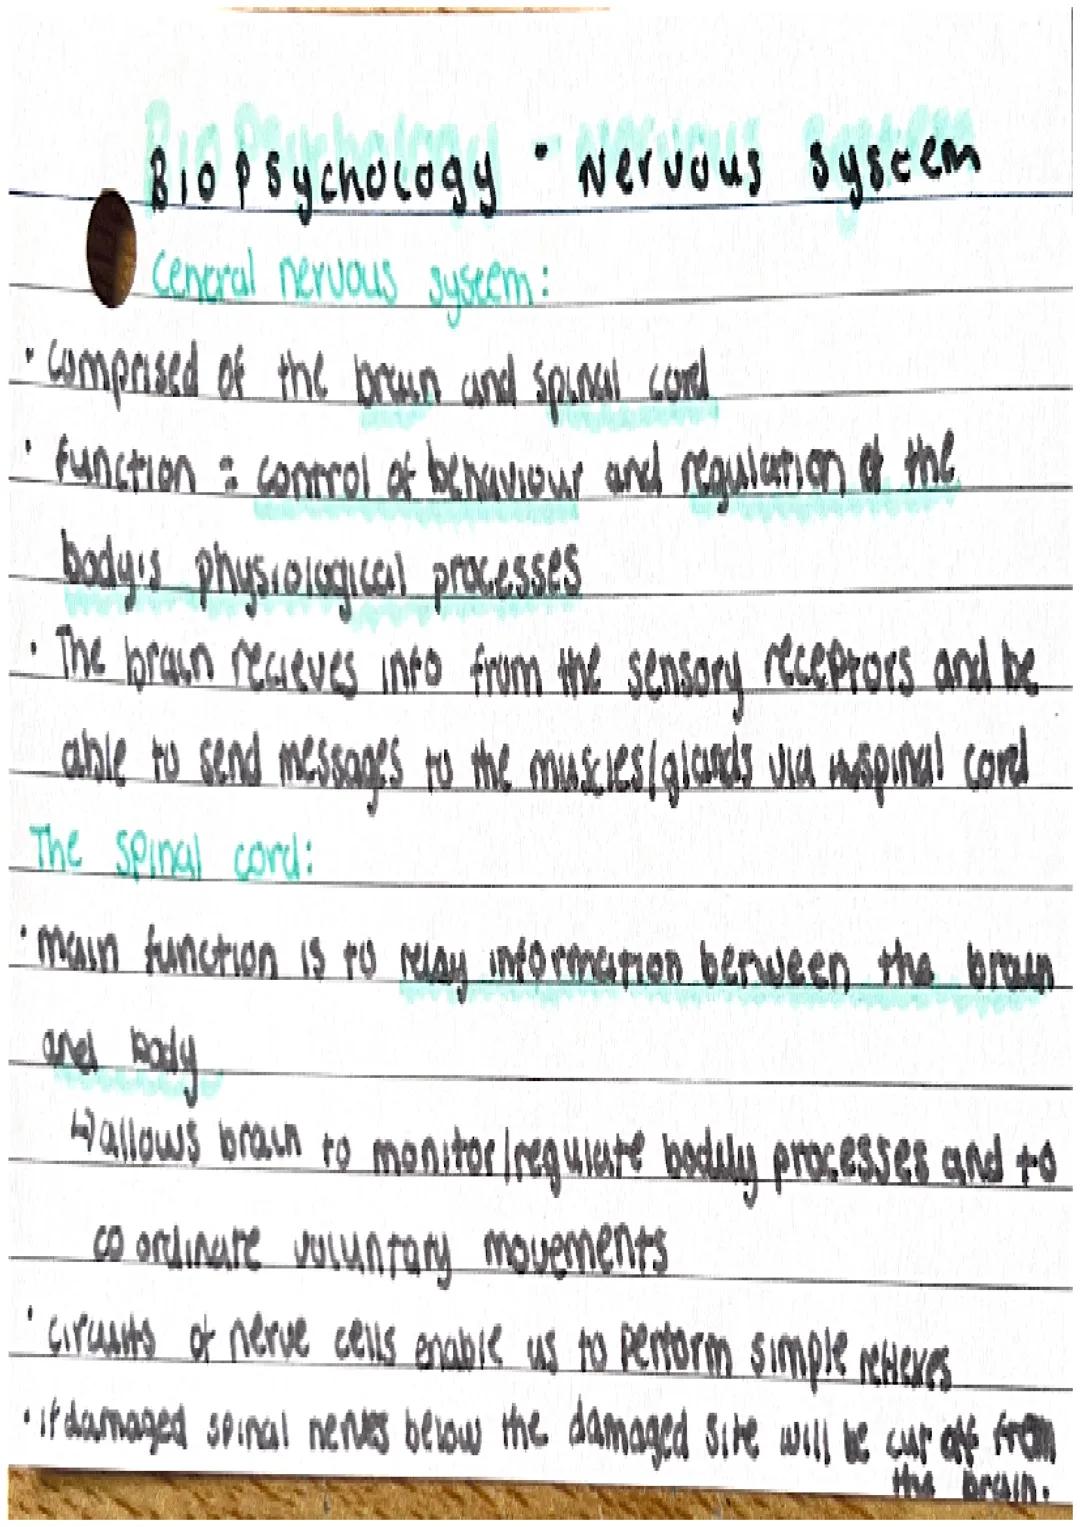 Biopsychology - Nervous system
Central nervous system:
• comprised of the brain and spinal cord
• function = control of behaviour and regulation of the
body's physiological processes
• The brain recieves info from the sensory receptors and be
able to send messages to the muscles/glands via spinal cord
The spinal cord:
• main function is to relay information between the brain
and body
↳ allows brain to monitor/regulate bodily processes and to
coordinate voluntary movements
• circuits of nerve cells enable us to perform simple reflexes
• if damaged spinal nerves below the damaged site will be cut off from
the brain.